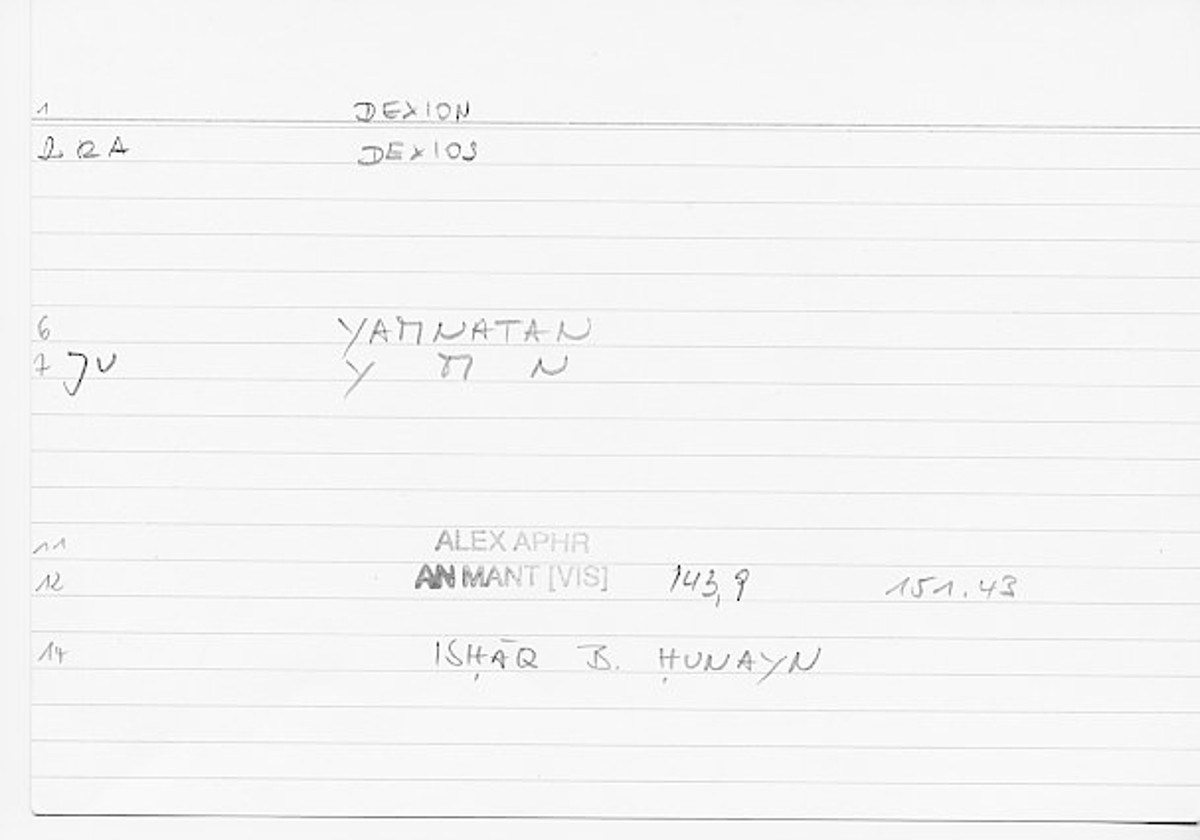 1 DEXION
2 RA DEXIOS
6 YAMNATAN
7 JU Y M N
11 ALEX APHR
12 AN MANT [VIS] 143,9 151.43
14 ISḤĀQ B. ḤUNAYN